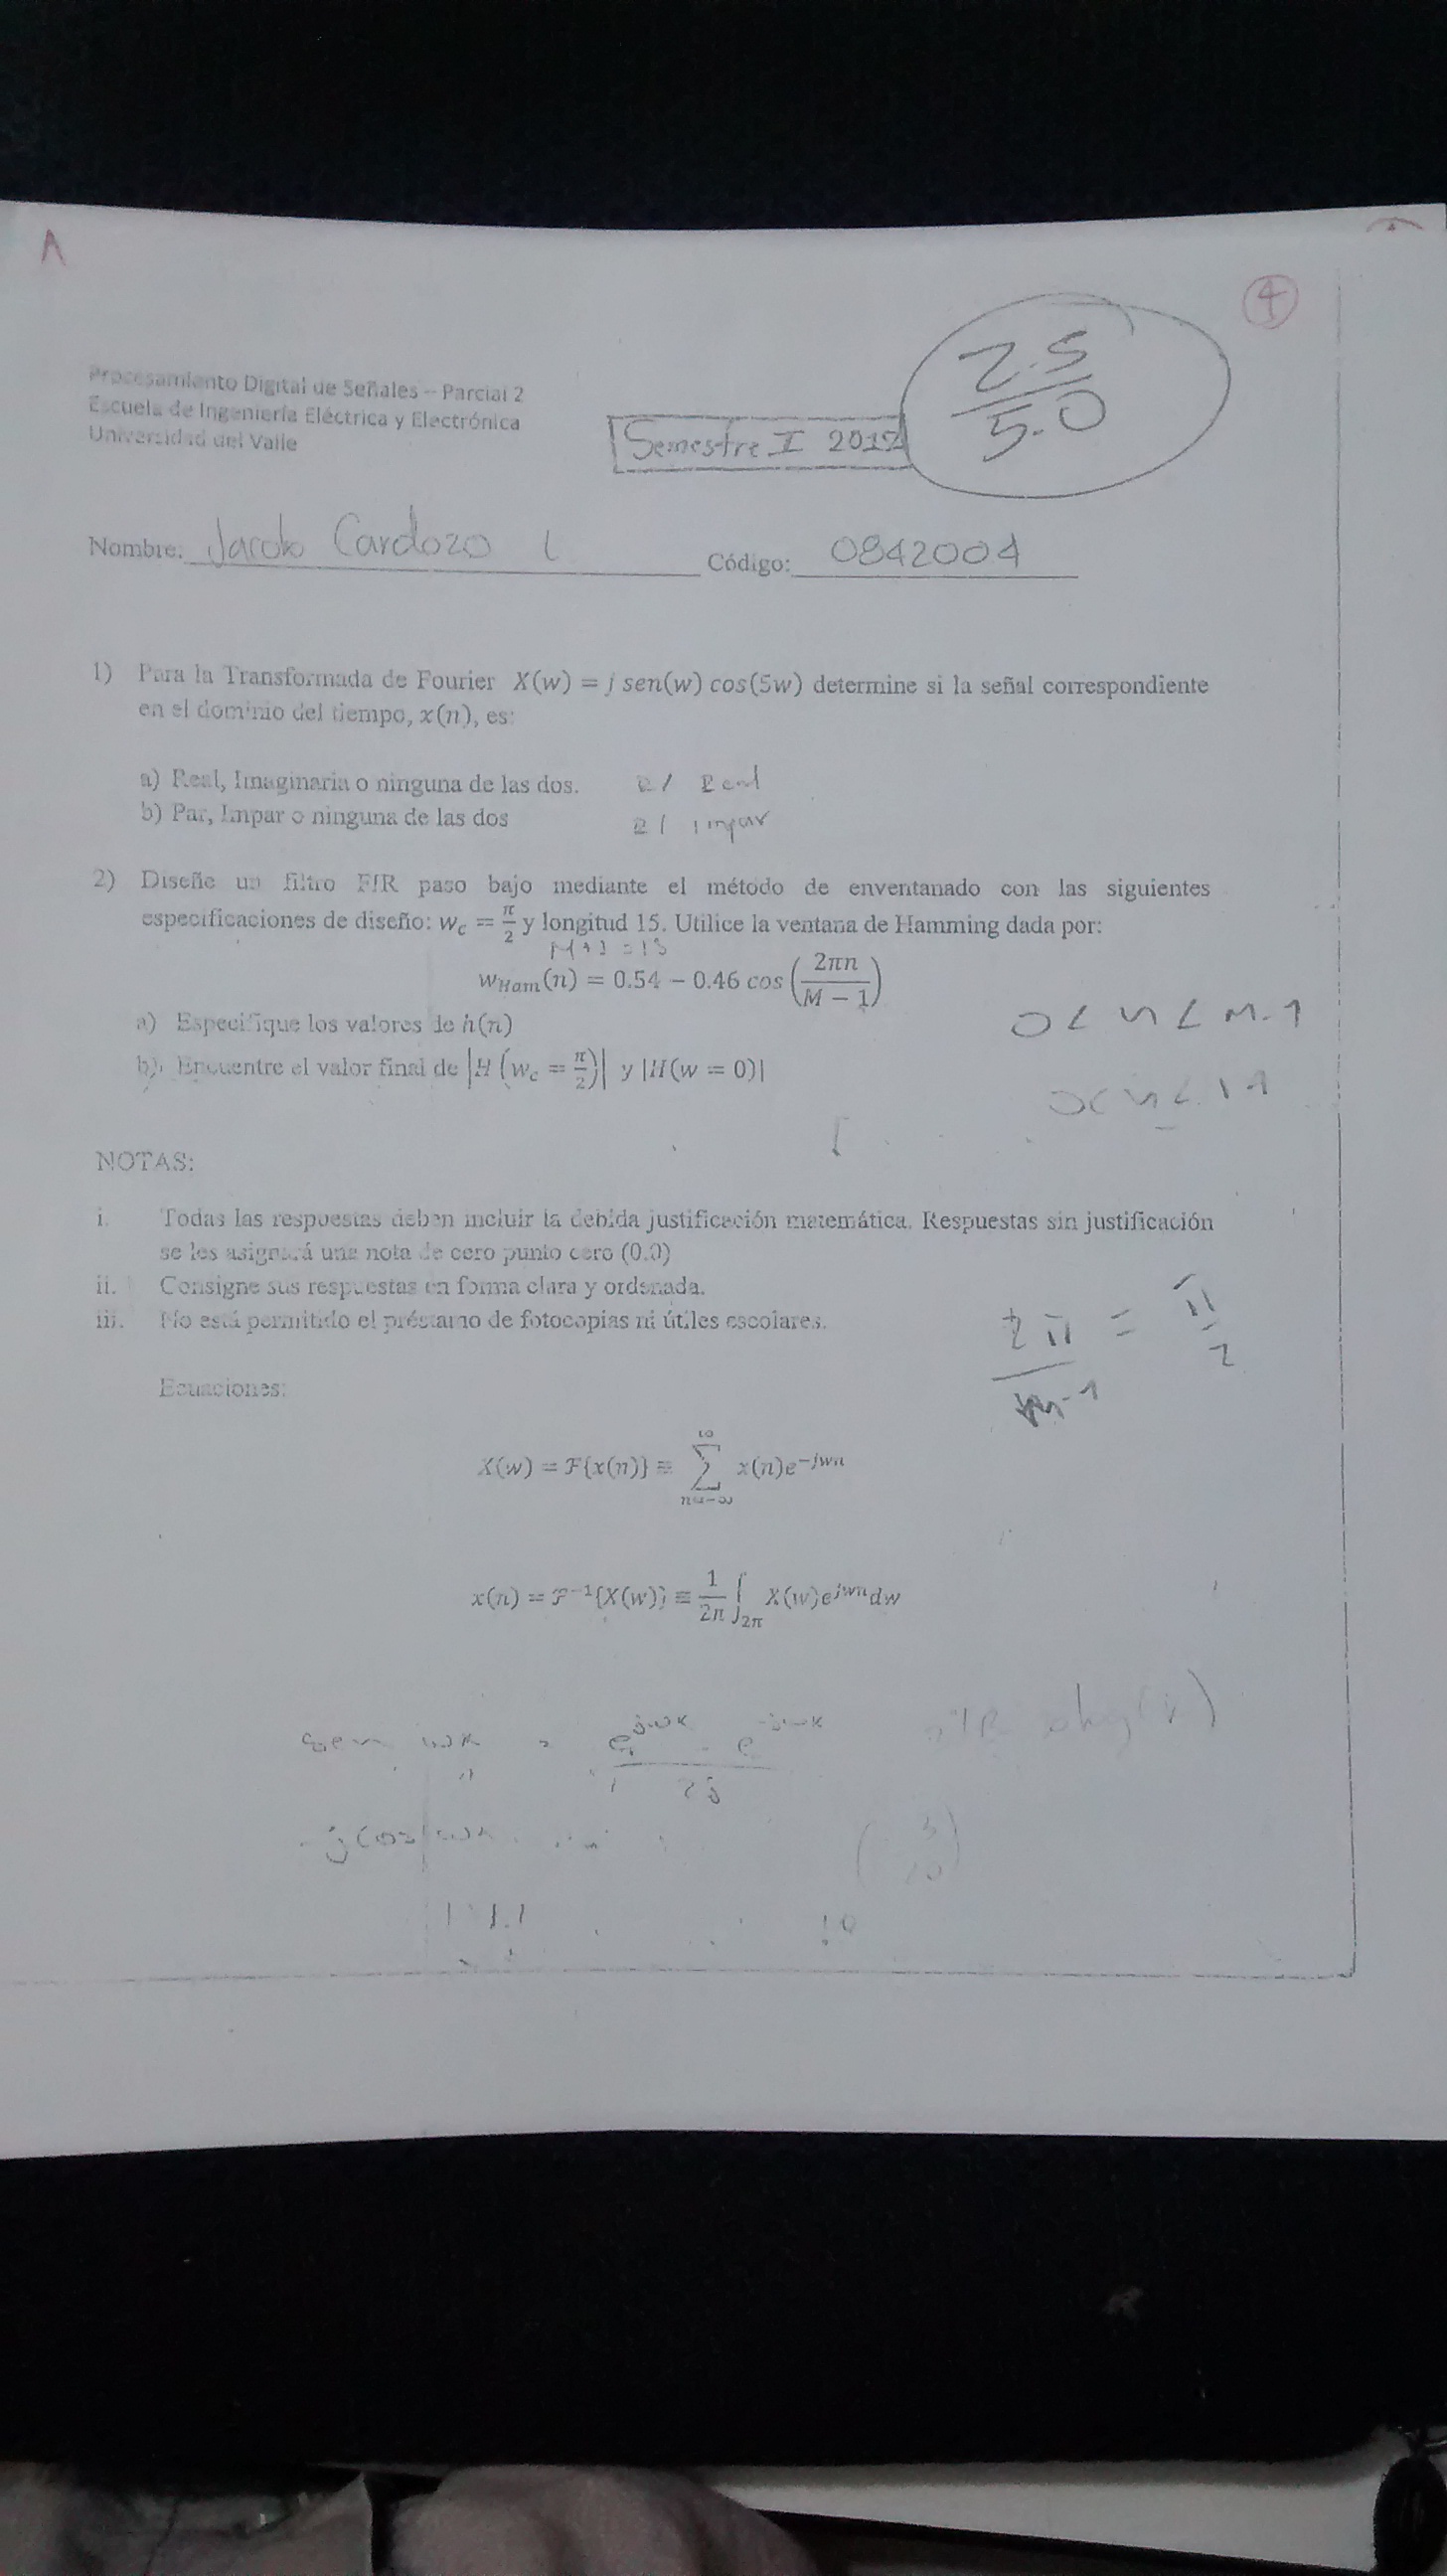 Λ
4
2.5
5.0
Procesamiento Digital de Señales – Parcial 2
Escuela de Ingeniería Eléctrica y Electrónica
Universidad del Valle
Semestre I 2012
Nombre: Jacobo Cardozo L Código: 0842004
1) Para la Transformada de Fourier X(w) = j sen(w) cos(5w) determine si la señal correspondiente
en el dominio del tiempo, x(n), es:
a) Real, Imaginaria o ninguna de las dos. R/ Real
b) Par, Impar o ninguna de las dos R/ impar
2) Diseñe un filtro FIR paso bajo mediante el método de enventanado con las siguientes
especificaciones de diseño: w_c = π/2 y longitud 15. Utilice la ventana de Hamming dada por:
w_Ham(n) = 0.54 − 0.46 cos(2πn/(M − 1))
a) Especifique los valores de h(n)
0 < n < M-1
b) Encuentre el valor final de |H(w_c = π/2)| y |H(w = 0)|
NOTAS:
i. Todas las respuestas deben incluir la debida justificación matemática. Respuestas sin justificación
se les asignará una nota de cero punto cero (0.0)
ii. Consigne sus respuestas en forma clara y ordenada.
iii. No está permitido el préstamo de fotocopias ni útiles escolares.
= π/2
Ecuaciones:
X(w) = ℱ{x(n)} ≡ ∑_{n=−∞}^{∞} x(n)e^{−jwn}
x(n) = ℱ^{−1}{X(w)} ≡ 1/2π ∫_{2π} X(w)e^{jwn}dw